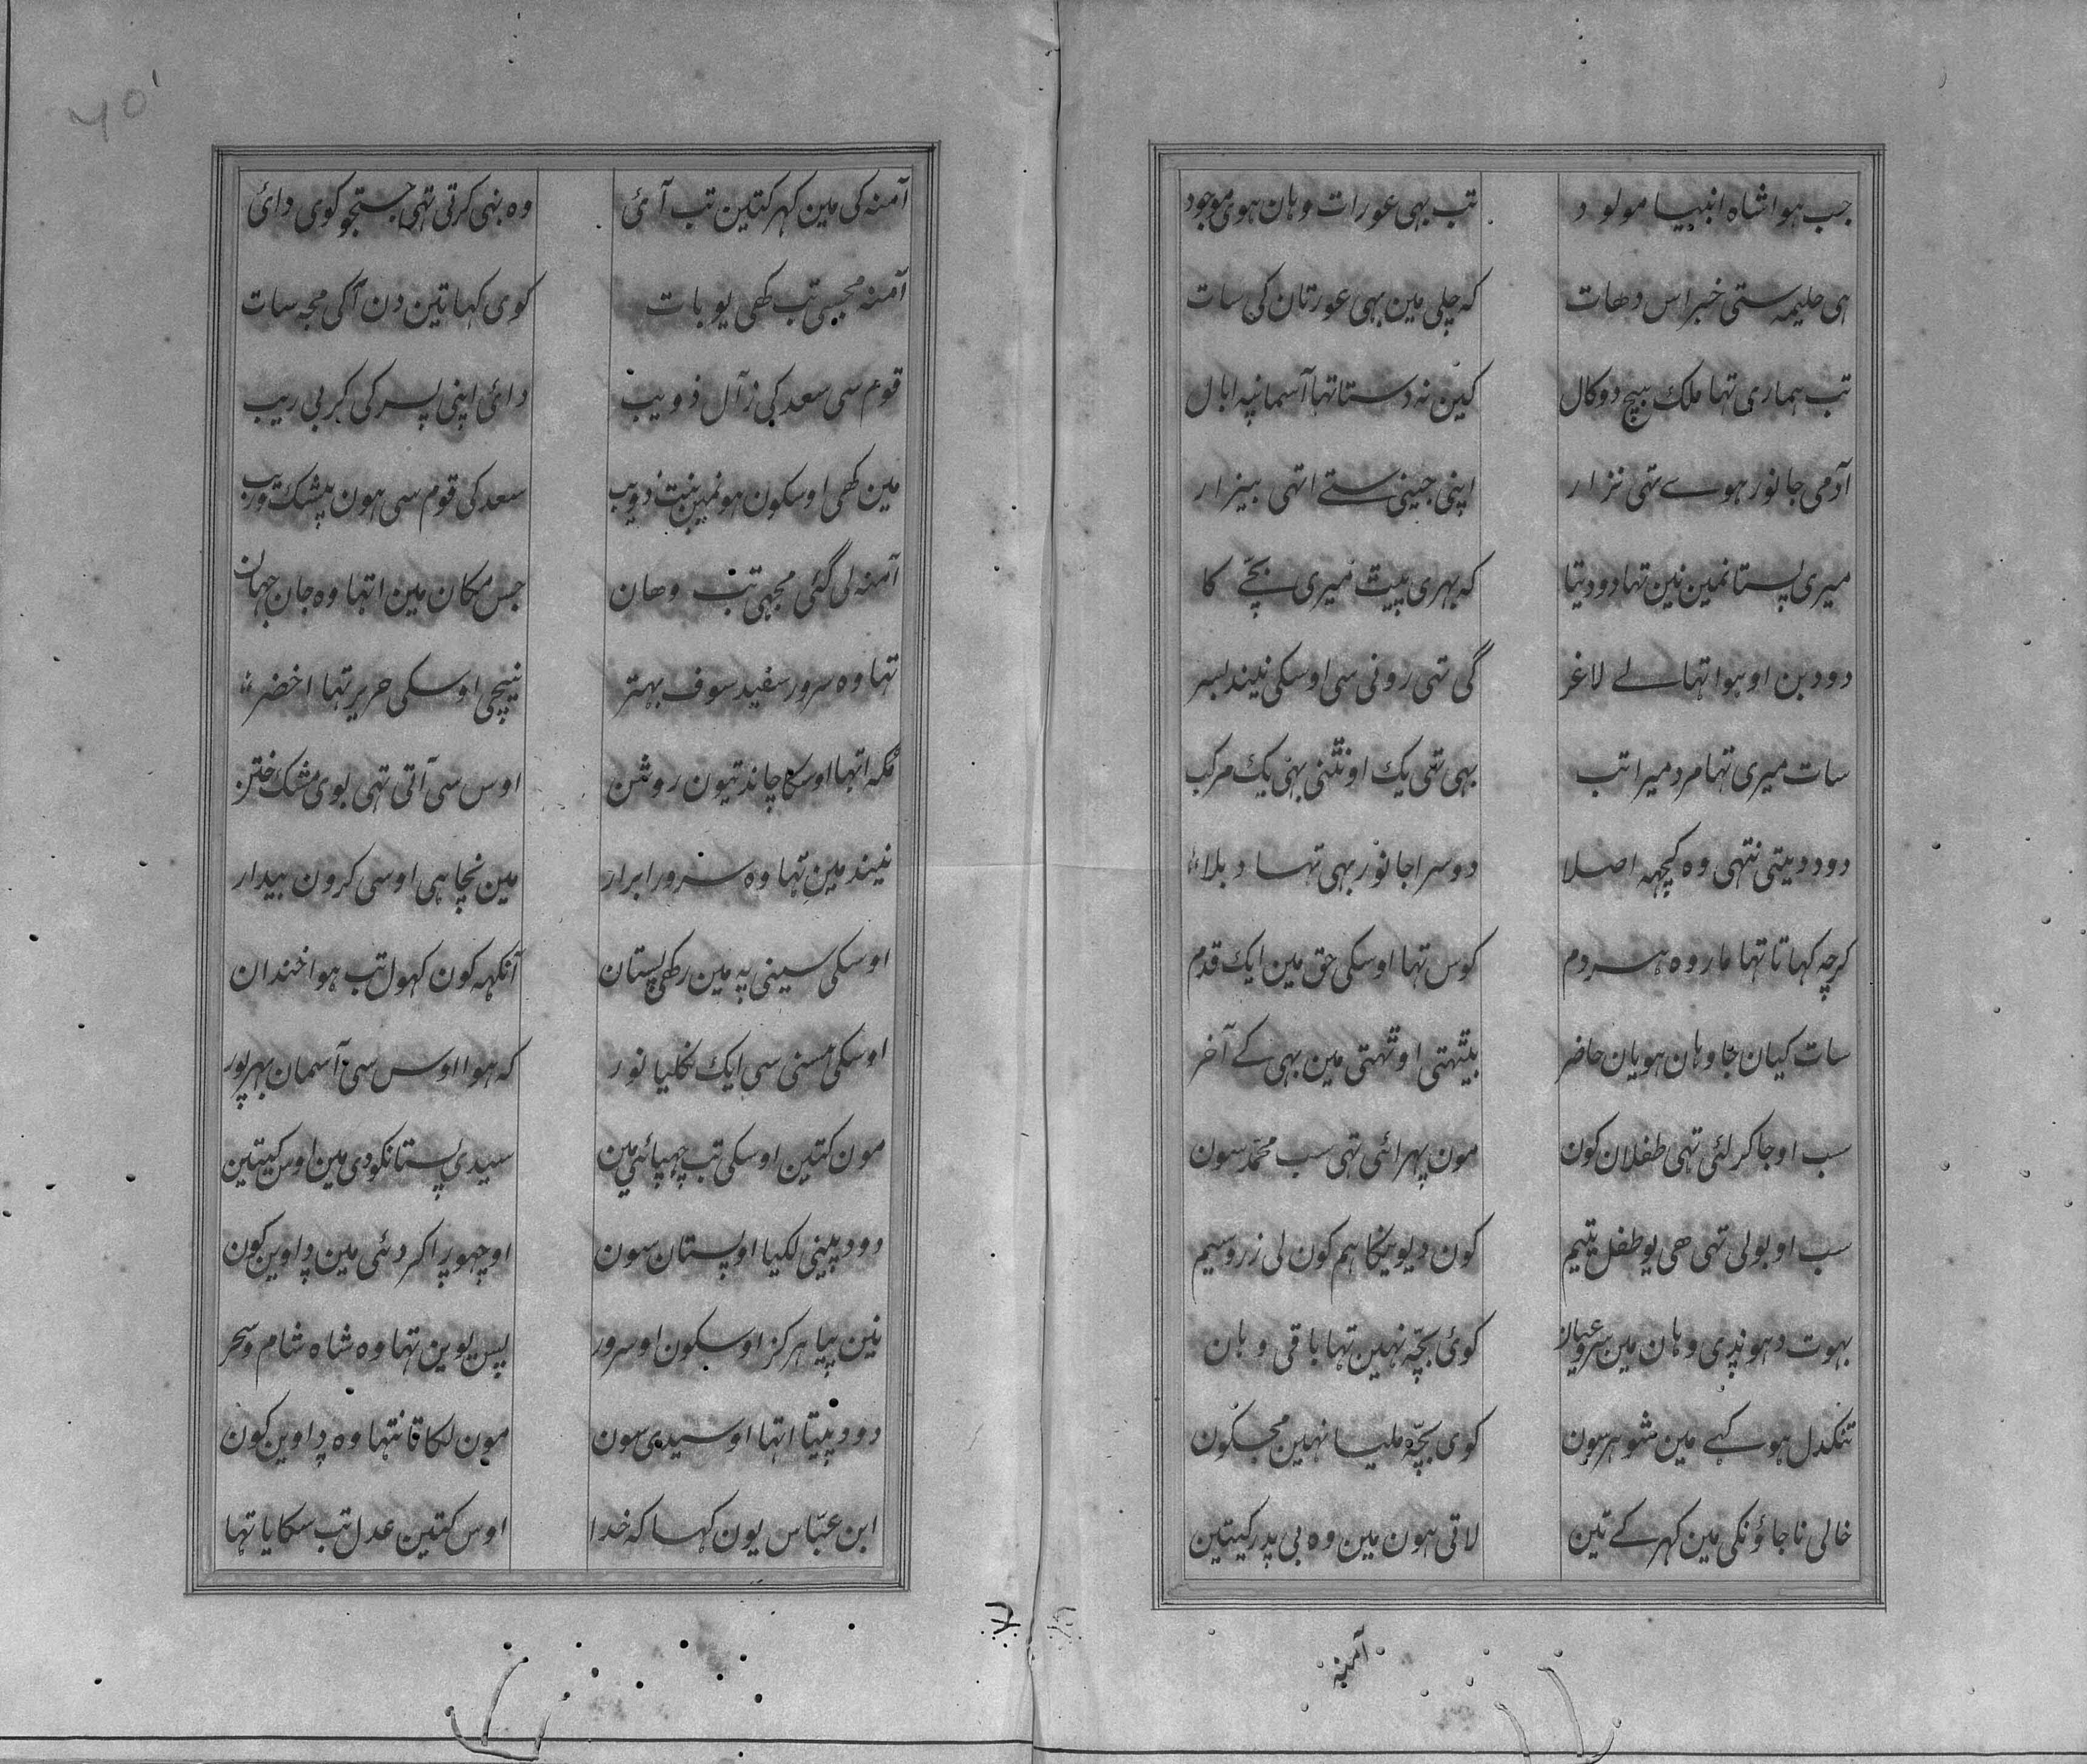 جب ہوا شاہ انبیا مولود تب بہی عورات وہان ہوی موجود
ہی حلیمہ ستی خبر اس دھات کہ چلی مین بہی عورتان کی سات
تب ہماری تہا ملک بیچ دوکال کین نہ دستا تہا آسمانپہ ابال
آدمی جانور ہوے تہی نزار اپنی جینی ستے اتہی بیزار
میری پستانمین نین تہا دود یتا کہ بہری پیت میری بچّے کا
دود بن او ہوا تہا لے لاغر گی تہی رونی سی اوسکی نیند بسر
سات میری تہا مرد میرا تب بہی تہی یک اونٹنی بہی یک مرکب
دود دیتی نتہی وہ کچہہ اصلا دوسرا جانور بہی تہا دبلا
کرچہ کہاتا تہا مار وہ ہر دم کوس تہا اوسکی حق مین ایک قدم
سات کیان جا وہان ہویان حاضر بیٹہتی اوٹہتی مین بہی کے آخر
سب او جا کر لئی تہی طفلان کون مون پہرائی تہی سب محمّد سون
سب او بولی تہی ھی یو طفل یتیم کون دیویکا ہم کون لی زر و سیم
بہوت دہونڈی وہان مین سر و عیان کوئ بچّہ نہین تہا باقی وہان
تنکدل ہو کہے مین شوہر سون کوی بچّہ ملیا نہین مجکون
خالی نا جاؤنکی مین کہر کے تین لاتی ہون مین وہ بی پدر کیتین
آمنہ
آمنہ کی مین کہر کتین تب آئ وہ بہی کرتی تہی جستجو کوی دائ
آمنہ مجسی تب کھی یو بات کوی کہا تین دن اکی مجہ سات
قوم سی سعد کی ز آل ذویب دائ اپنی پسر کی کر بی ریب
مین کھی اوسکون ہونمین بنت ذویب سعد کی قوم سی ہون بیشک و ریب
آمنہ لی گئی مجہی تب وھان جس مکان مین اتہا وہ جان جہان
تہا وہ سرور سفید سوف بہتر نیچی اوسکی حریر تہا اخضر
مکہ اتہا اوسکا چاند تیون روشن اوس سی آتی تہی بوی مشک ختن
نیند مین تہا وہ سرور ابرار مین نچاہی اوسی کرون بیدار
اوسکی سینی پہ مین رکھی پستان آنکہہ کون کہول تب ہوا خندان
اوسکی ہسنی سی ایک نکلیا نور کہ ہوا اوس سی آسمان بہرپور
مون کتین اوسکی تب چہپائی مین سیدی پستانکو دی مین اوس کیتین
دود پینی لکیا او پستان سون او چہورا کر دئی مین داوین کون
نین پیا ہر کز اوسکون او سرور بس یوین تہا وہ شاہ شام و سحر
دود پیتا اتہا او سیدی سون مون لکاتا نتہا وہ داوین کون
ابن عبّاس یون کہا کہ خدا اوس کتین عدل تب سکایا تہا